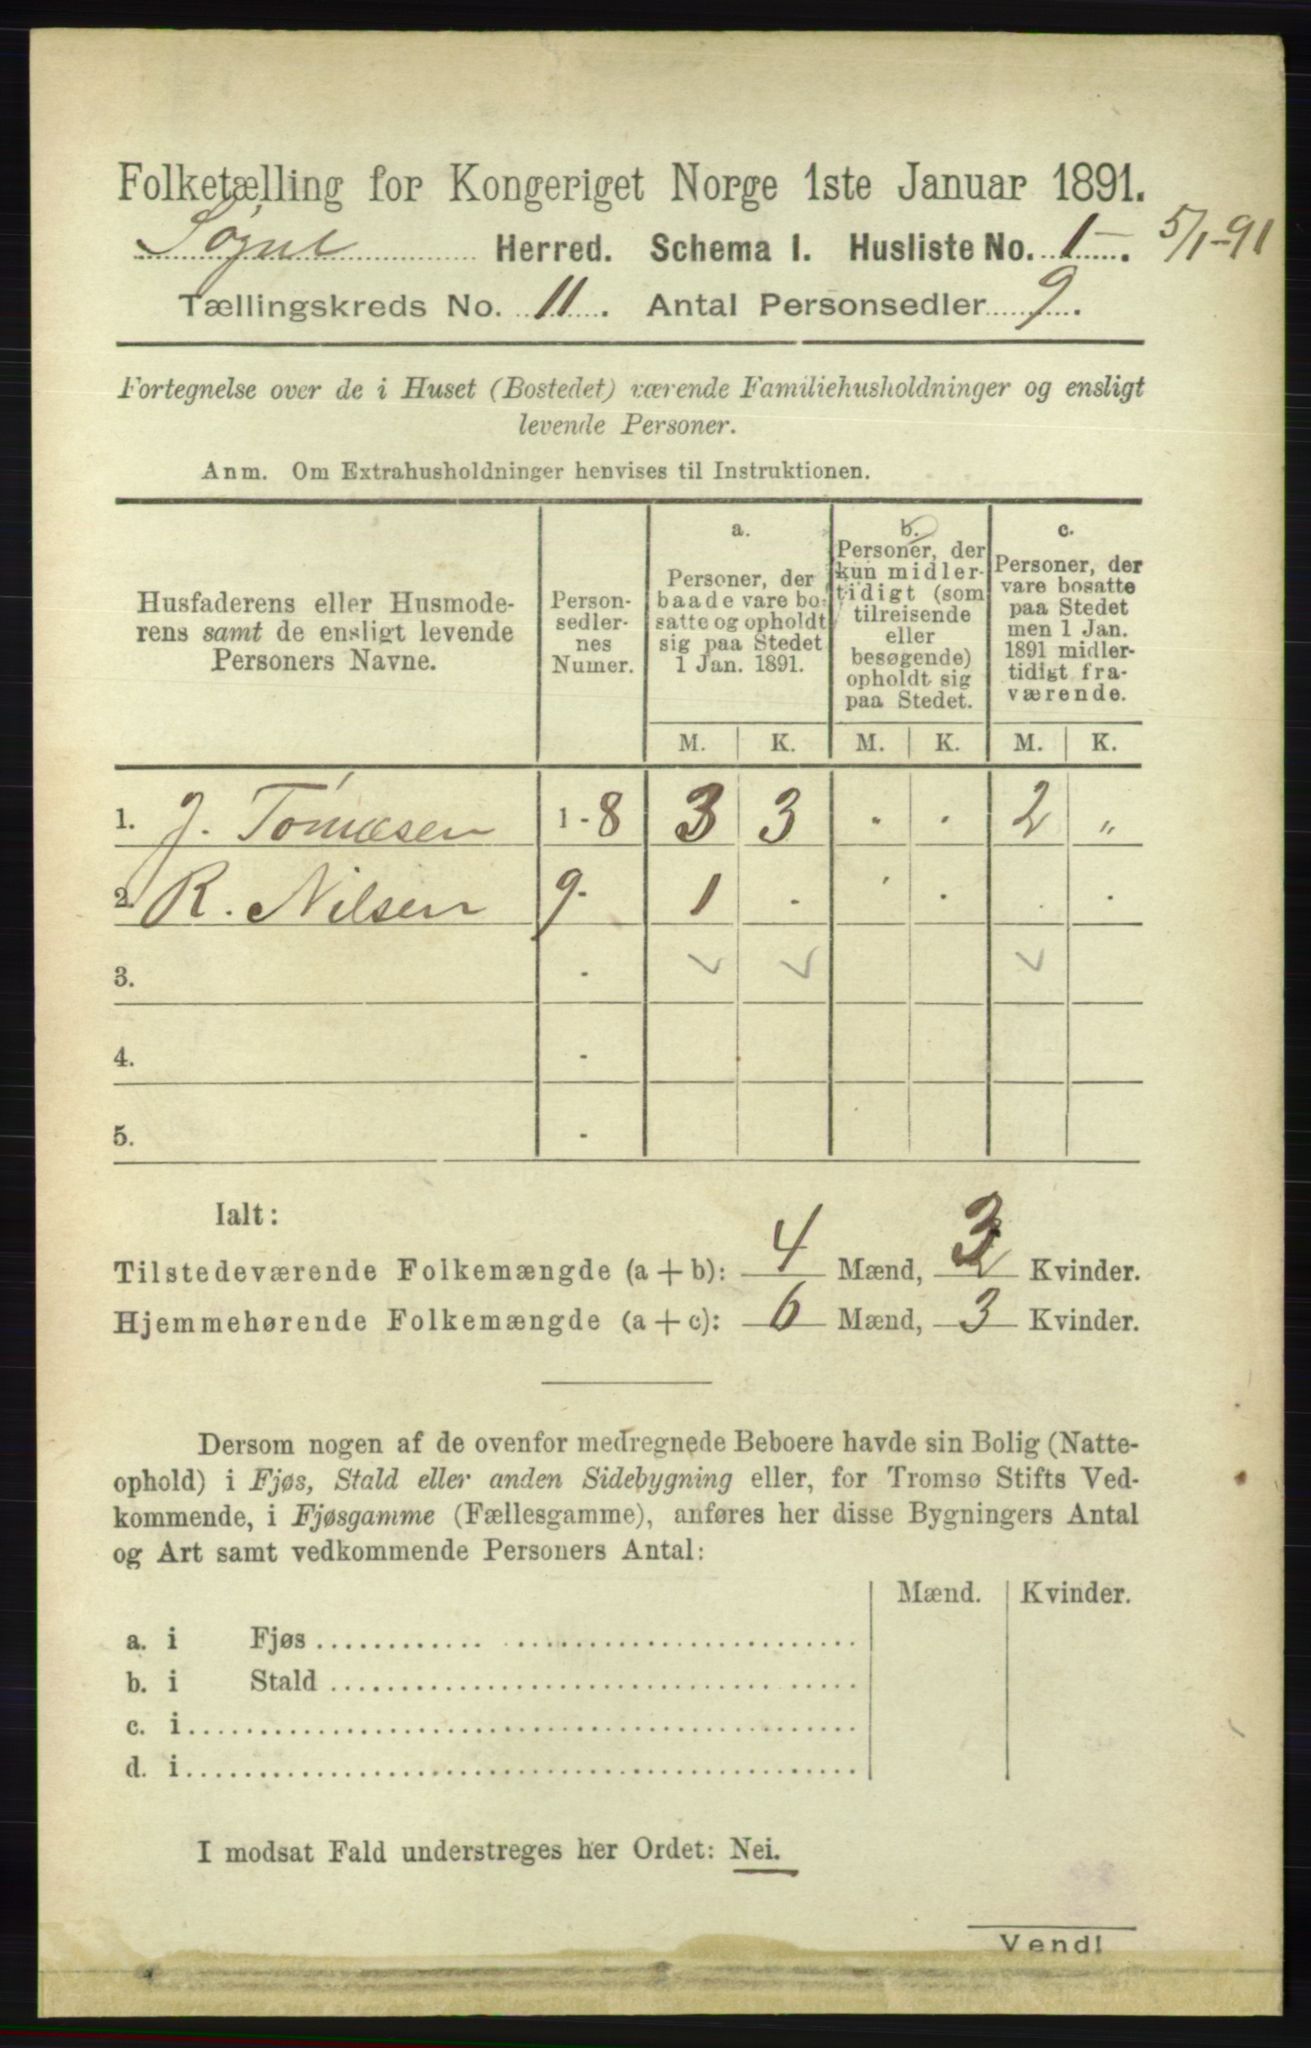 Folketælling for Kongeriget Norge 1ste Januar 1891.
Søgne Herred. Schema I. Husliste No. 1 . 5/1-91
Tællingskreds No. 11 . Antal Personsedler 9 .
Fortegnelse over de i Huset (Bostedet) værende Familiehusholdninger og ensligt
levende Personer.
Anm. Om Extrahusholdninger henvises til Instruktionen.
Husfaderens eller Husmode-
rens samt de ensligt levende
Personers Navne.
Person-
sedler-
nes
Numer.
a.
Personer, der
baade vare bo-
satte og opholdt
sig paa Stedet
1 Jan. 1891.
b.
Personer, der
kun midler-
tidigt (som
tilreisende
eller
besøgende)
opholdt sig
paa Stedet.
c.
Personer, der
vare bosatte
paa Stedet
men 1 Jan.
1891 midler-
tidigt fra-
værende.
M. K. M. K. M. K.
1. J. Tomasen 1 - 8 3 3 . . 2 „
2. R. Nilsen 9 - 1 . . . . .
3. -
4. -
5. -
Ialt:
Tilstedeværende Folkemængde (a + b): 4 Mænd, 3 Kvinder.
Hjemmehørende Folkemængde (a + c): 6 Mænd, 3 Kvinder.
Dersom nogen af de ovenfor medregnede Beboere havde sin Bolig (Natte-
ophold) i Fjøs, Stald eller anden Sidebygning eller, for Tromsø Stifts Ved-
kommende, i Fjøsgamme (Fællesgamme), anføres her disse Bygningers Antal
og Art samt vedkommende Personers Antal:
Mænd. Kvinder.
a. i Fjøs
b. i Stald
c. i
d. i
I modsat Fald understreges her Ordet: Nei.
Vend!